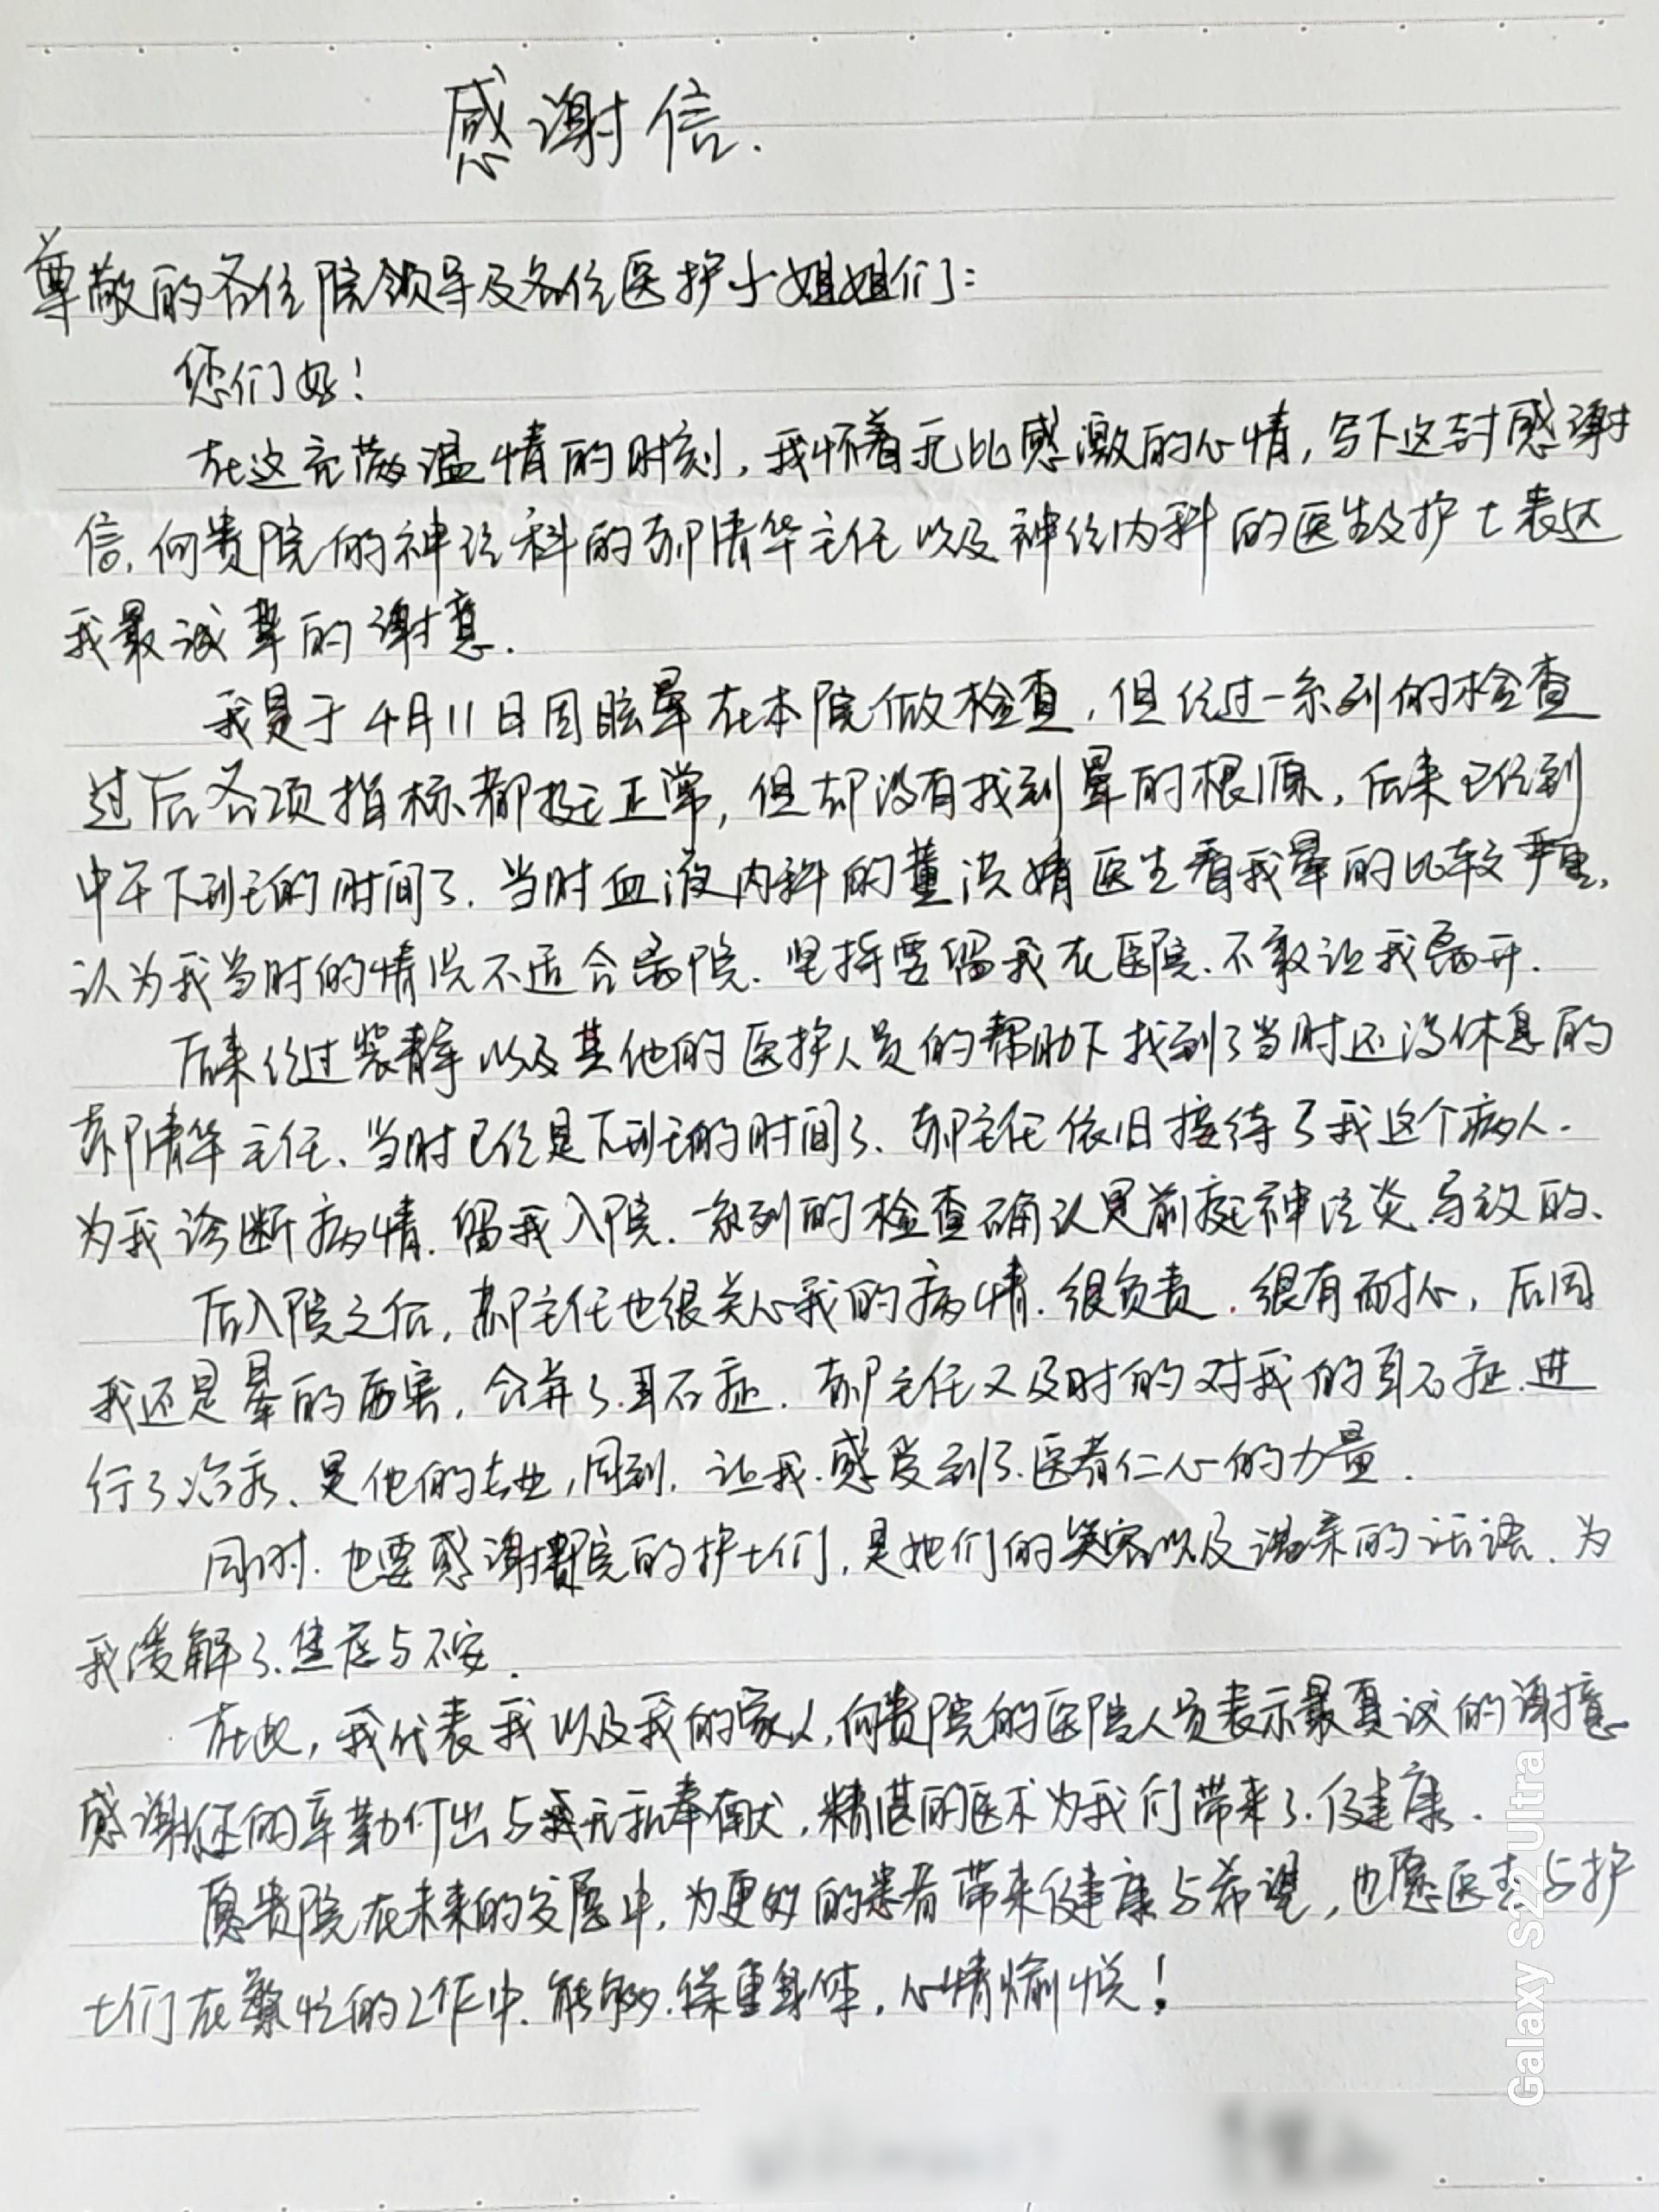 感谢信.
尊敬的各位院领导及各位医护小姐姐们:
您们好!
在这充满温情的时刻,我怀着无比感激的心情,写下这封感谢
信.向贵院的神经科的郝清华主任以及神经内科的医生及护士表达
我最诚挚的谢意.
我是于4月11日因眩晕在本院做检查,但经过一系列的检查
过后各项指标都挺正常,但却没有找到晕的根源,后来已经到
中午下班的时间了.当时血液内科的董洪婧医生看我晕的比较严重,
认为我当时的情况不适合离院.坚持要留我在医院.不敢让我离开.
后来经过裴静以及其他的医护人员的帮助下找到了当时还没休息的
郝清华主任、当时已经是下班的时间了、郝主任依旧接待了我这个病人.
为我诊断病情.留我入院.一系列的检查确认是前庭神经炎导致的、
后入院之后,郝主任也很关心我的病情.很负责.很有耐心,后因
我还是晕的厉害,合并了耳石症.郝主任又及时的对我的耳石症进
行了治疗、是他的专业,周到,让我感受到了医者仁心的力量.
同时.也要感谢贵院的护士们,是她们的笑容以及温亲的话语、为
我缓解了焦虑与不安.
在此,我代表我以及我的家人,向贵院的医院人员表示最真诚的谢意
感谢您的辛勤付出与我无私奉献,精湛的医术为我们带来了健康.
愿贵院在未来的发展中,为更多的患者带来健康与希望,也愿医生与护
士们在繁忙的工作中.能够保重身体,心情愉悦!
Galaxy S22 Ultra